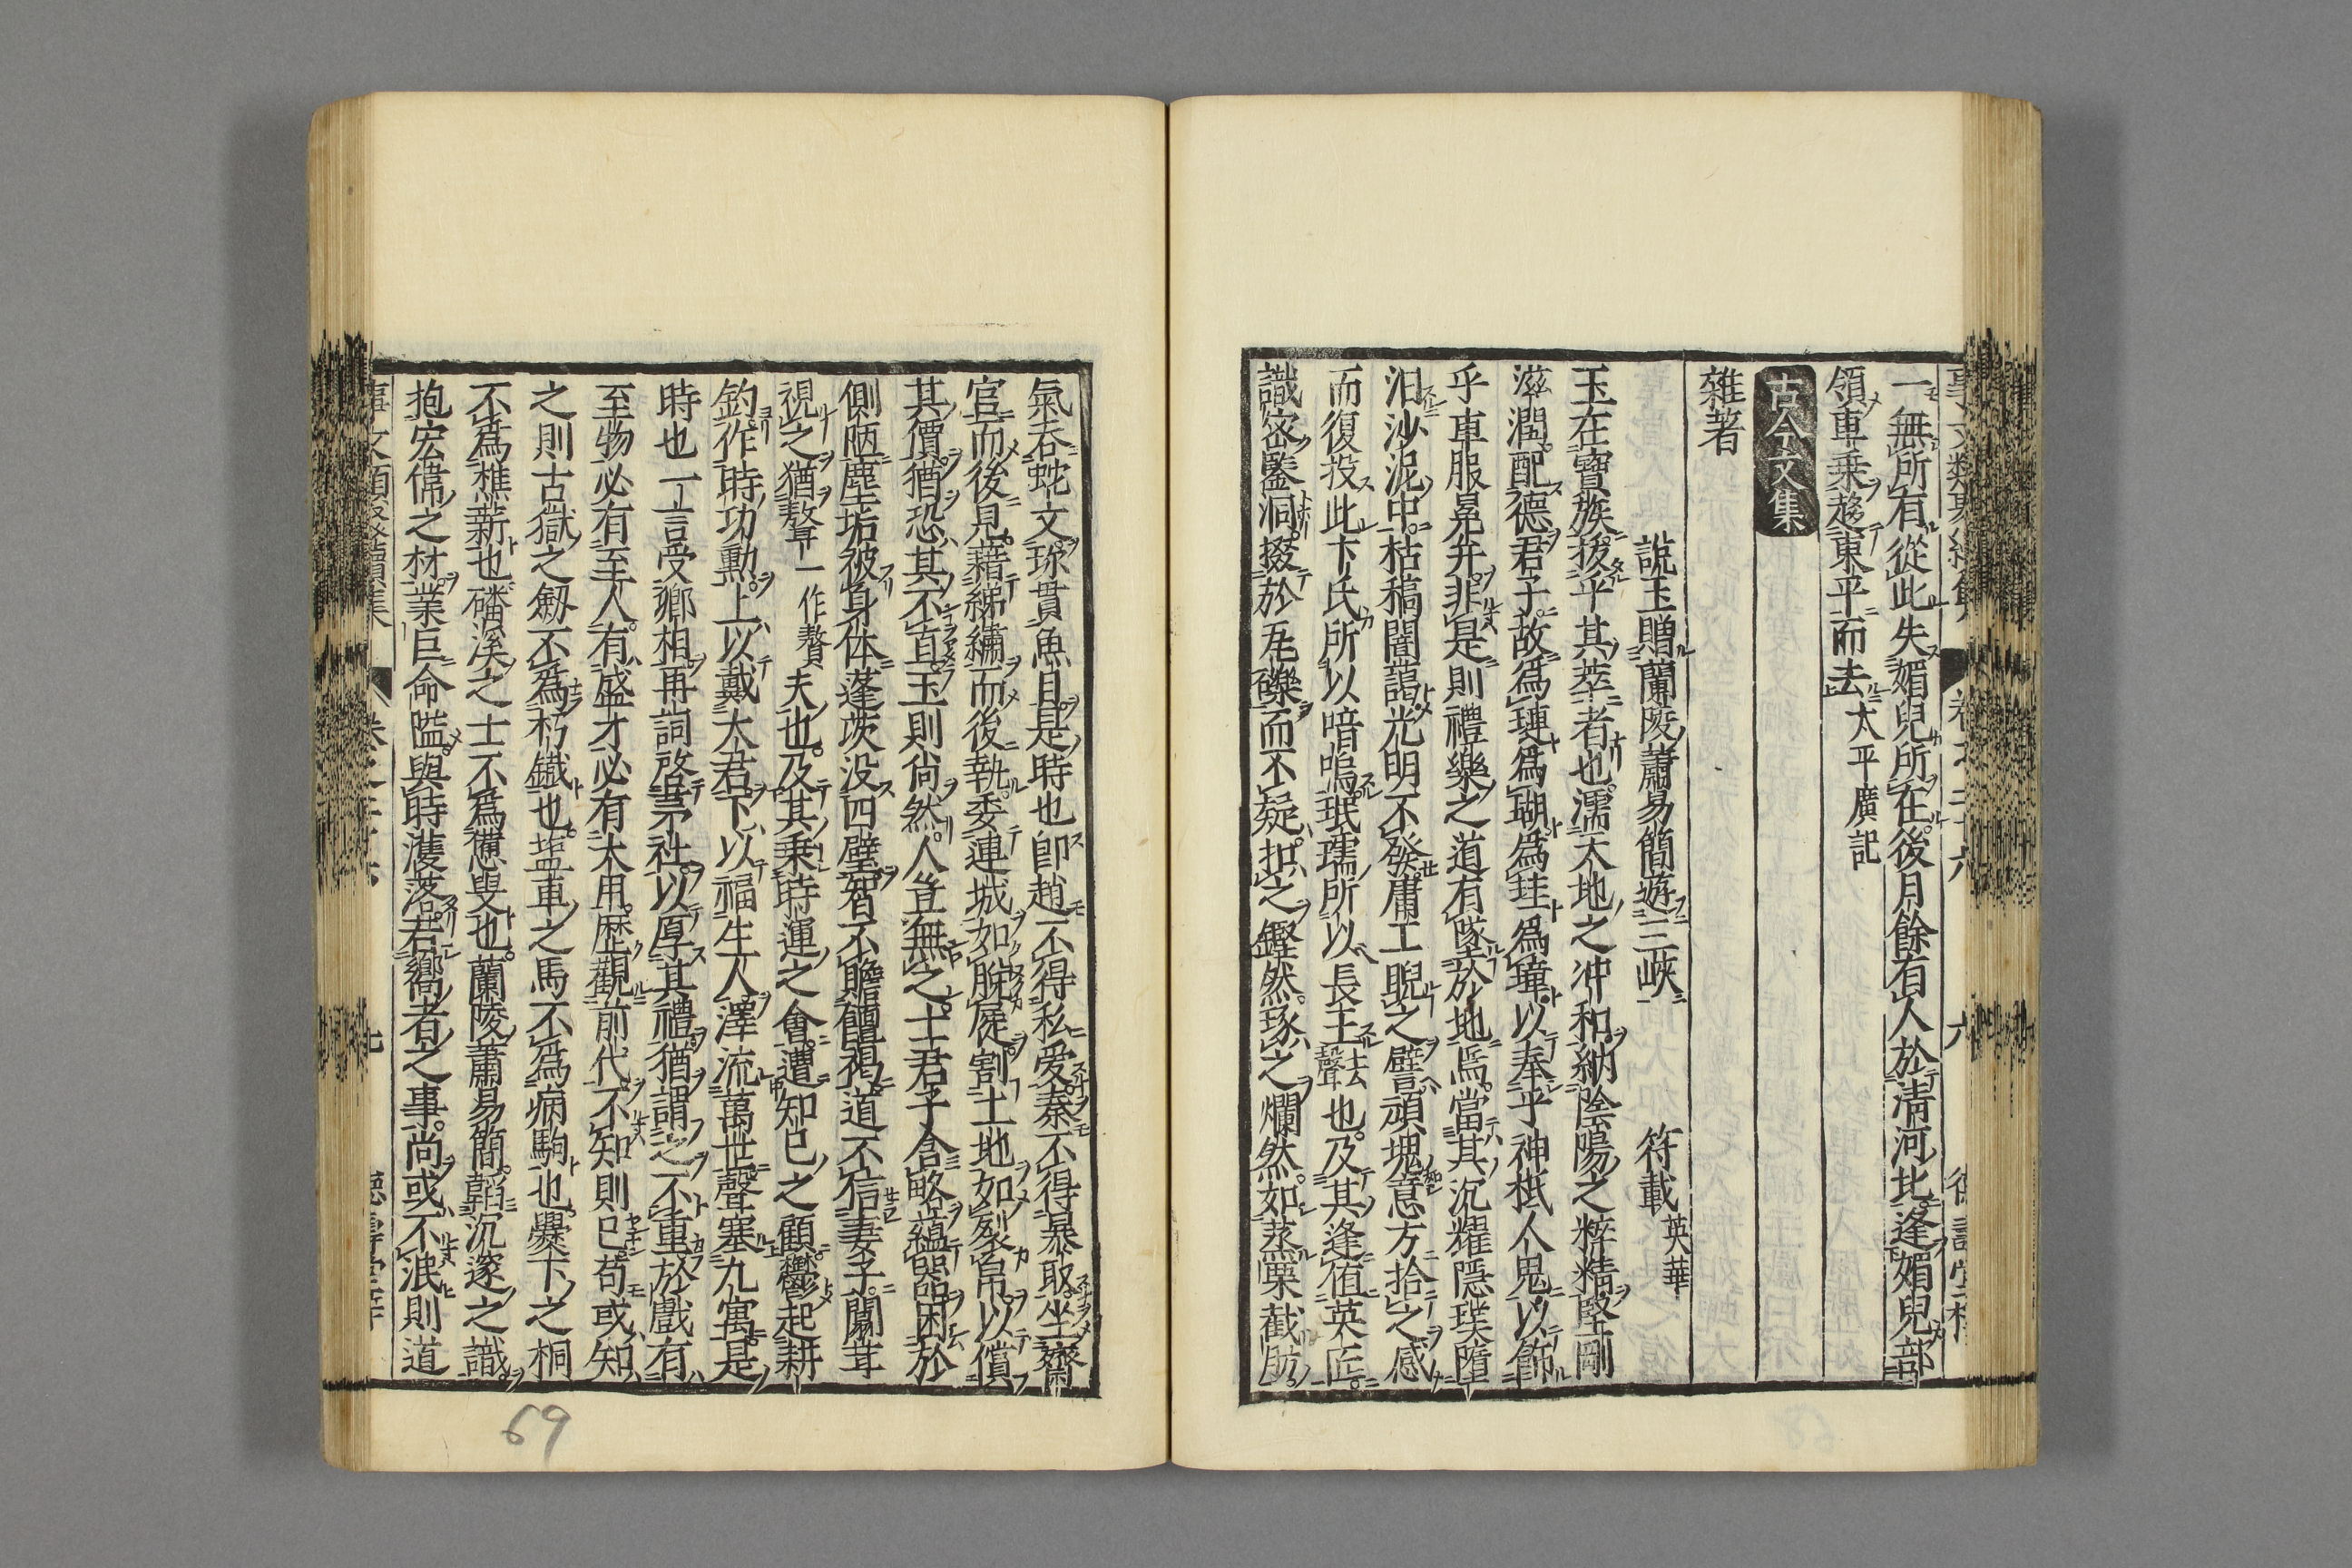 一無所有從此失媚兒所在後月餘有人於清河北逢媚兒部
領車乗趍東平而去太平廣記
古今文集
雜著
說玉贈蘭陵蕭易簡遊三峽 符載英華
玉在寶族拔乎其萃者也濡天地之冲和納陰陽之粹精堅剛
滋潤配德君子故爲璉爲瑚爲珪爲璋以奉乎神祇人鬼以飾
乎車服冕弁非是則禮樂之道有墜於地焉當其沉耀隱璞墮
汨沙泥中枯稿闇藹光明不發庸工睨之譬頑塊意方拾之感
而復投此卞氏所以喑嗚珉瓀所以長王去聲也及其逢値英匠
識密鑒洞掇於瓦礫而不疑扣之鏗然琢之爛然如蒸栗截肪
氣吞蛇文琢貫魚目是時也卽趙不得私愛秦不得暴取坐齋
宫而後見藉綈繡而後執委連城如脫屣割土地如裂帛以償
其價猶恐其不直玉則尙然人豈無之士君子含略蘊器困於
側陋塵垢被身体蓬茨没四壁智不贍饘褐道不信妻子闒茸
視之猶聱一作贅夫也及其乗時運之會遭知已之顧鬱起耕
釣作時功勳上以戴大君下以福生人澤流萬世聲塞九寓是
時也一言受鄉相再詞啓茅社以厚其禮猶謂之不重於戲有
至物必有至人有盛才必有大用歷觀前代不知則已苟或知
之則古獄之劒不爲朽鐵也塩車之馬不爲病駒也爨下之桐
不爲樵薪也磻溪之士不爲憊叟也蘭陵蕭易簡韜沉邃之識
抱宏偉之材業巨命隘與時濩落若嚮者之事尚或不泯則道
69